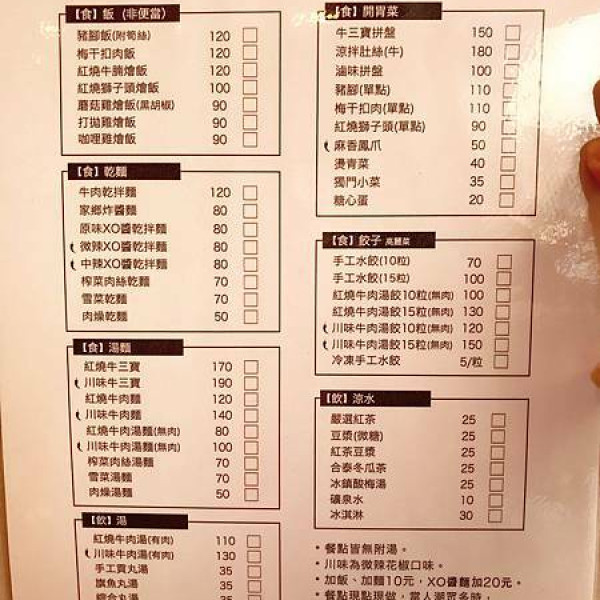 【食】飯（非便當）
豬腳飯(附筍絲) 120
梅干扣肉飯 120
紅燒牛腩燴飯 120
紅燒獅子頭燴飯 100
蘑菇雞燴飯(黑胡椒) 90
打拋雞燴飯 90
咖哩雞燴飯 90
【食】乾麵
牛肉乾拌麵 120
家鄉炸醬麵 80
原味XO醬乾拌麵 80
微辣XO醬乾拌麵 80
中辣XO醬乾拌麵 80
榨菜肉絲乾麵 70
雪菜乾麵 70
肉燥乾麵 50
【食】湯麵
紅燒牛三寶 170
川味牛三寶 190
紅燒牛肉麵 120
川味牛肉麵 140
紅燒牛肉湯麵(無肉) 80
川味牛肉湯麵(無肉) 100
榨菜肉絲湯麵 70
雪菜湯麵 70
肉燥湯麵 50
【飲】湯
紅燒牛肉湯(有肉) 110
川味牛肉湯(有肉) 130
手工貢丸湯 35
旗魚丸湯 35
綜合丸湯 35
【食】開胃菜
牛三寶拼盤 150
涼拌肚絲(牛) 180
滷味拼盤 100
豬腳(單點) 110
梅干扣肉(單點) 110
紅燒獅子頭(單點) 90
麻香鳳爪 50
燙青菜 40
獨門小菜 35
糖心蛋 20
【食】餃子 高麗菜
手工水餃(10粒) 70
手工水餃(15粒) 100
紅燒牛肉湯餃10粒(無肉) 100
紅燒牛肉湯餃15粒(無肉) 130
川味牛肉湯餃10粒(無肉) 120
川味牛肉湯餃15粒(無肉) 150
冷凍手工水餃 5/粒
【飲】涼水
嚴選紅茶 25
豆漿(微糖) 25
紅茶豆漿 25
合泰冬瓜茶 25
冰鎮酸梅湯 25
礦泉水 10
冰淇淋 30
• 餐點皆無附湯。
• 川味為微辣花椒口味。
• 加飯、加麵10元，XO醬麵加20元。
• 餐點現點現做，當人潮眾多時，